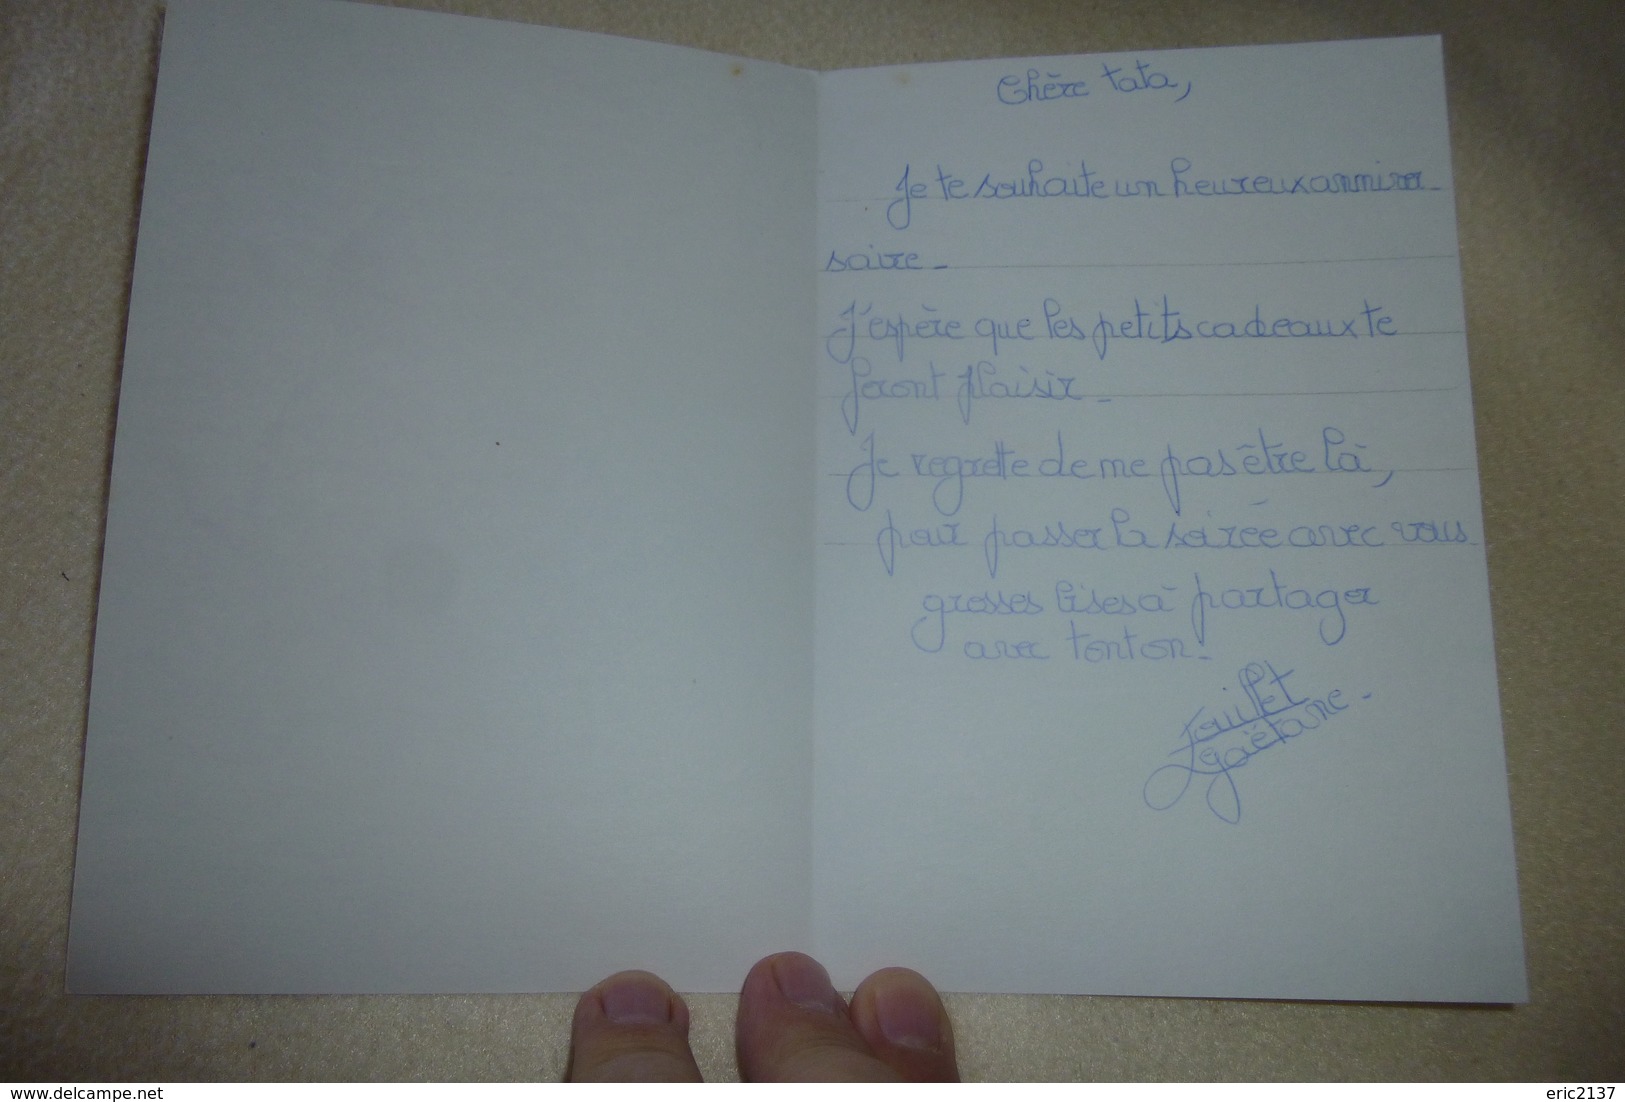 Chère tata,
Je te souhaite un heureux anniver-
saire.
J'espère que les petits cadeaux te
feront plaisir.
Je regrette de ne pas être là,
pour passer la soirée avec vous.
grosses bises à partager
avec tonton.
gaëtane.
www.delcampe.net
eric2137